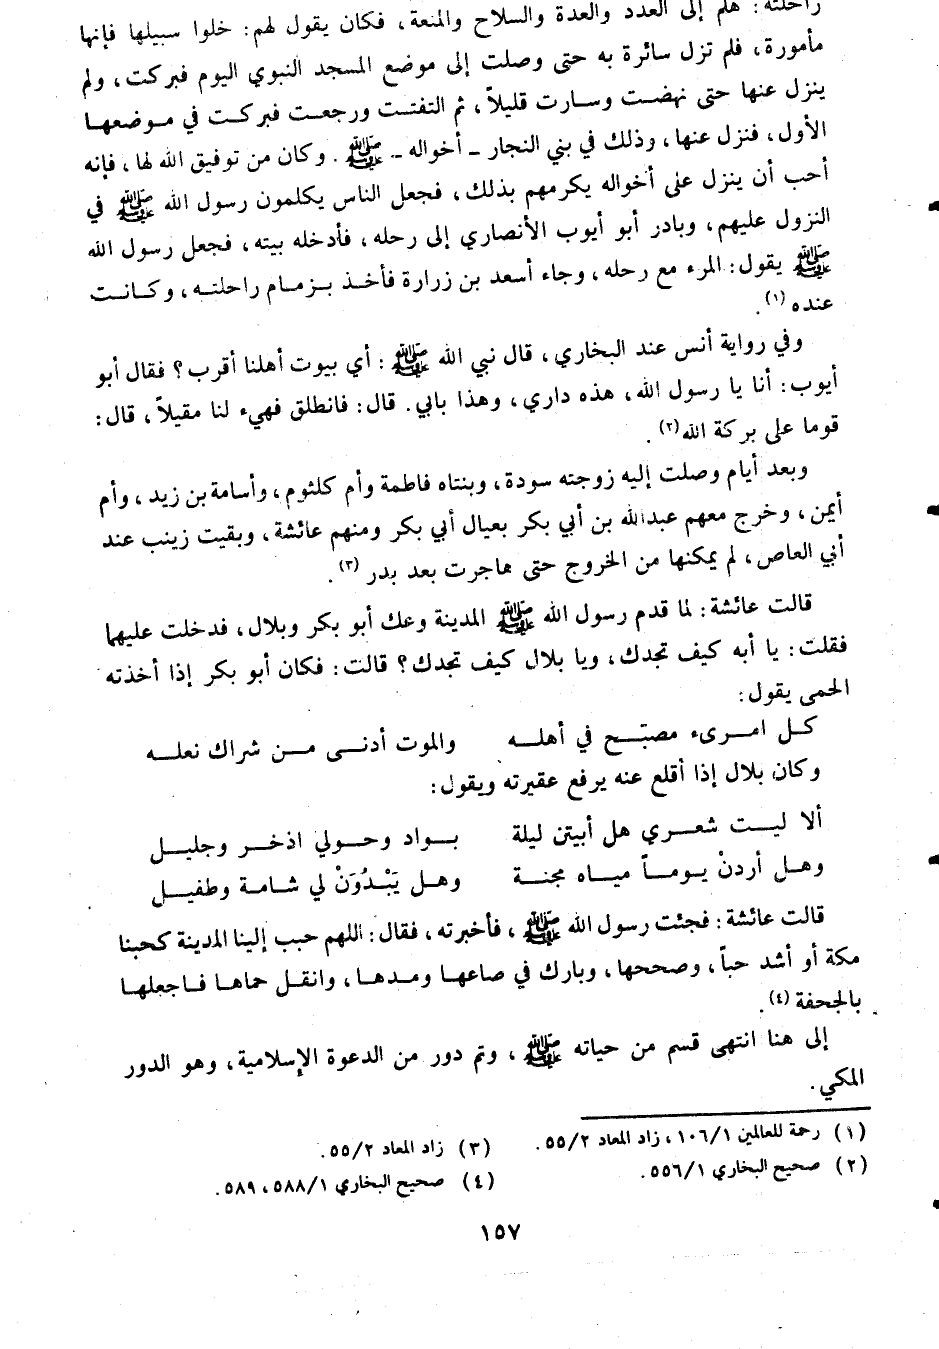 راحلته: هلم إلى العدد والعدة والسلاح والمنعة، فكان يقول لهم: خلوا سبيلها فإنها
مأمورة، فلم تزل سائرة به حتى وصلت إلى موضع المسجد النبوي اليوم فبركت، ولم
ينزل عنها حتى نهضت وسارت قليلاً، ثم التفتت ورجعت فبركت في موضعها
الأول، فنزل عنها، وذلك في بني النجار ـ أخواله ـ ﷺ. وكان من توفيق الله لها، فإنه
أحب أن ينزل على أخواله يكرمهم بذلك، فجعل الناس يكلمون رسول الله ﷺ في
النزول عليهم، وبادر أبو أيوب الأنصاري إلى رحله، فأدخله بيته، فجعل رسول الله
ﷺ يقول: المرء مع رحله، وجاء أسعد بن زرارة فأخذ بزمام راحلته، وكانت
عنده (١).
وفي رواية أنس عند البخاري، قال نبي الله ﷺ: أي بيوت أهلنا أقرب؟ فقال أبو
أيوب: أنا يا رسول الله، هذه داري، وهذا بابي. قال: فانطلق فهيء لنا مقيلاً، قال:
قوما على بركة الله (٢).
وبعد أيام وصلت إليه زوجته سودة، وبنتاه فاطمة وأم كلثوم، وأسامة بن زيد، وأم
أيمن، وخرج معهم عبدالله بن أبي بكر بعيال أبي بكر ومنهم عائشة، وبقيت زينب عند
أبي العاص، لم يمكنها من الخروج حتى هاجرت بعد بدر (٣).
قالت عائشة: لما قدم رسول الله ﷺ المدينة وعك أبو بكر وبلال، فدخلت عليهما
فقلت: يا أبه كيف تجدك، ويا بلال كيف تجدك؟ قالت: فكان أبو بكر إذا أخذته
الحمى يقول:
كل امرىء مصبّح في أهله والموت أدنى من شراك نعله
وكان بلال إذا أقلع عنه يرفع عقيرته ويقول:
ألا ليت شعري هل أبيتن ليلة بواد وحولي اذخر وجليل
وهل أردنْ يوماً مياه مجنة وهل يَبْدُوَنْ لي شامة وطفيل
قالت عائشة: فجئت رسول الله ﷺ، فأخبرته، فقال: اللهم حبب إلينا المدينة كحبنا
مكة أو أشد حباً، وصححها، وبارك في صاعها ومدها، وانقل حماها فاجعلها
بالجحفة (٤).
إلى هنا انتهى قسم من حياته ﷺ، وتم دور من الدعوة الإسلامية، وهو الدور
المكي.
(١) رحمة للعالمين ١٠٦/١، زاد المعاد ٥٥/٢.
(٢) صحيح البخاري ٥٥٦/١.
(٣) زاد المعاد ٥٥/٢.
(٤) صحيح البخاري ٥٨٨/١، ٥٨٩.
١٥٧